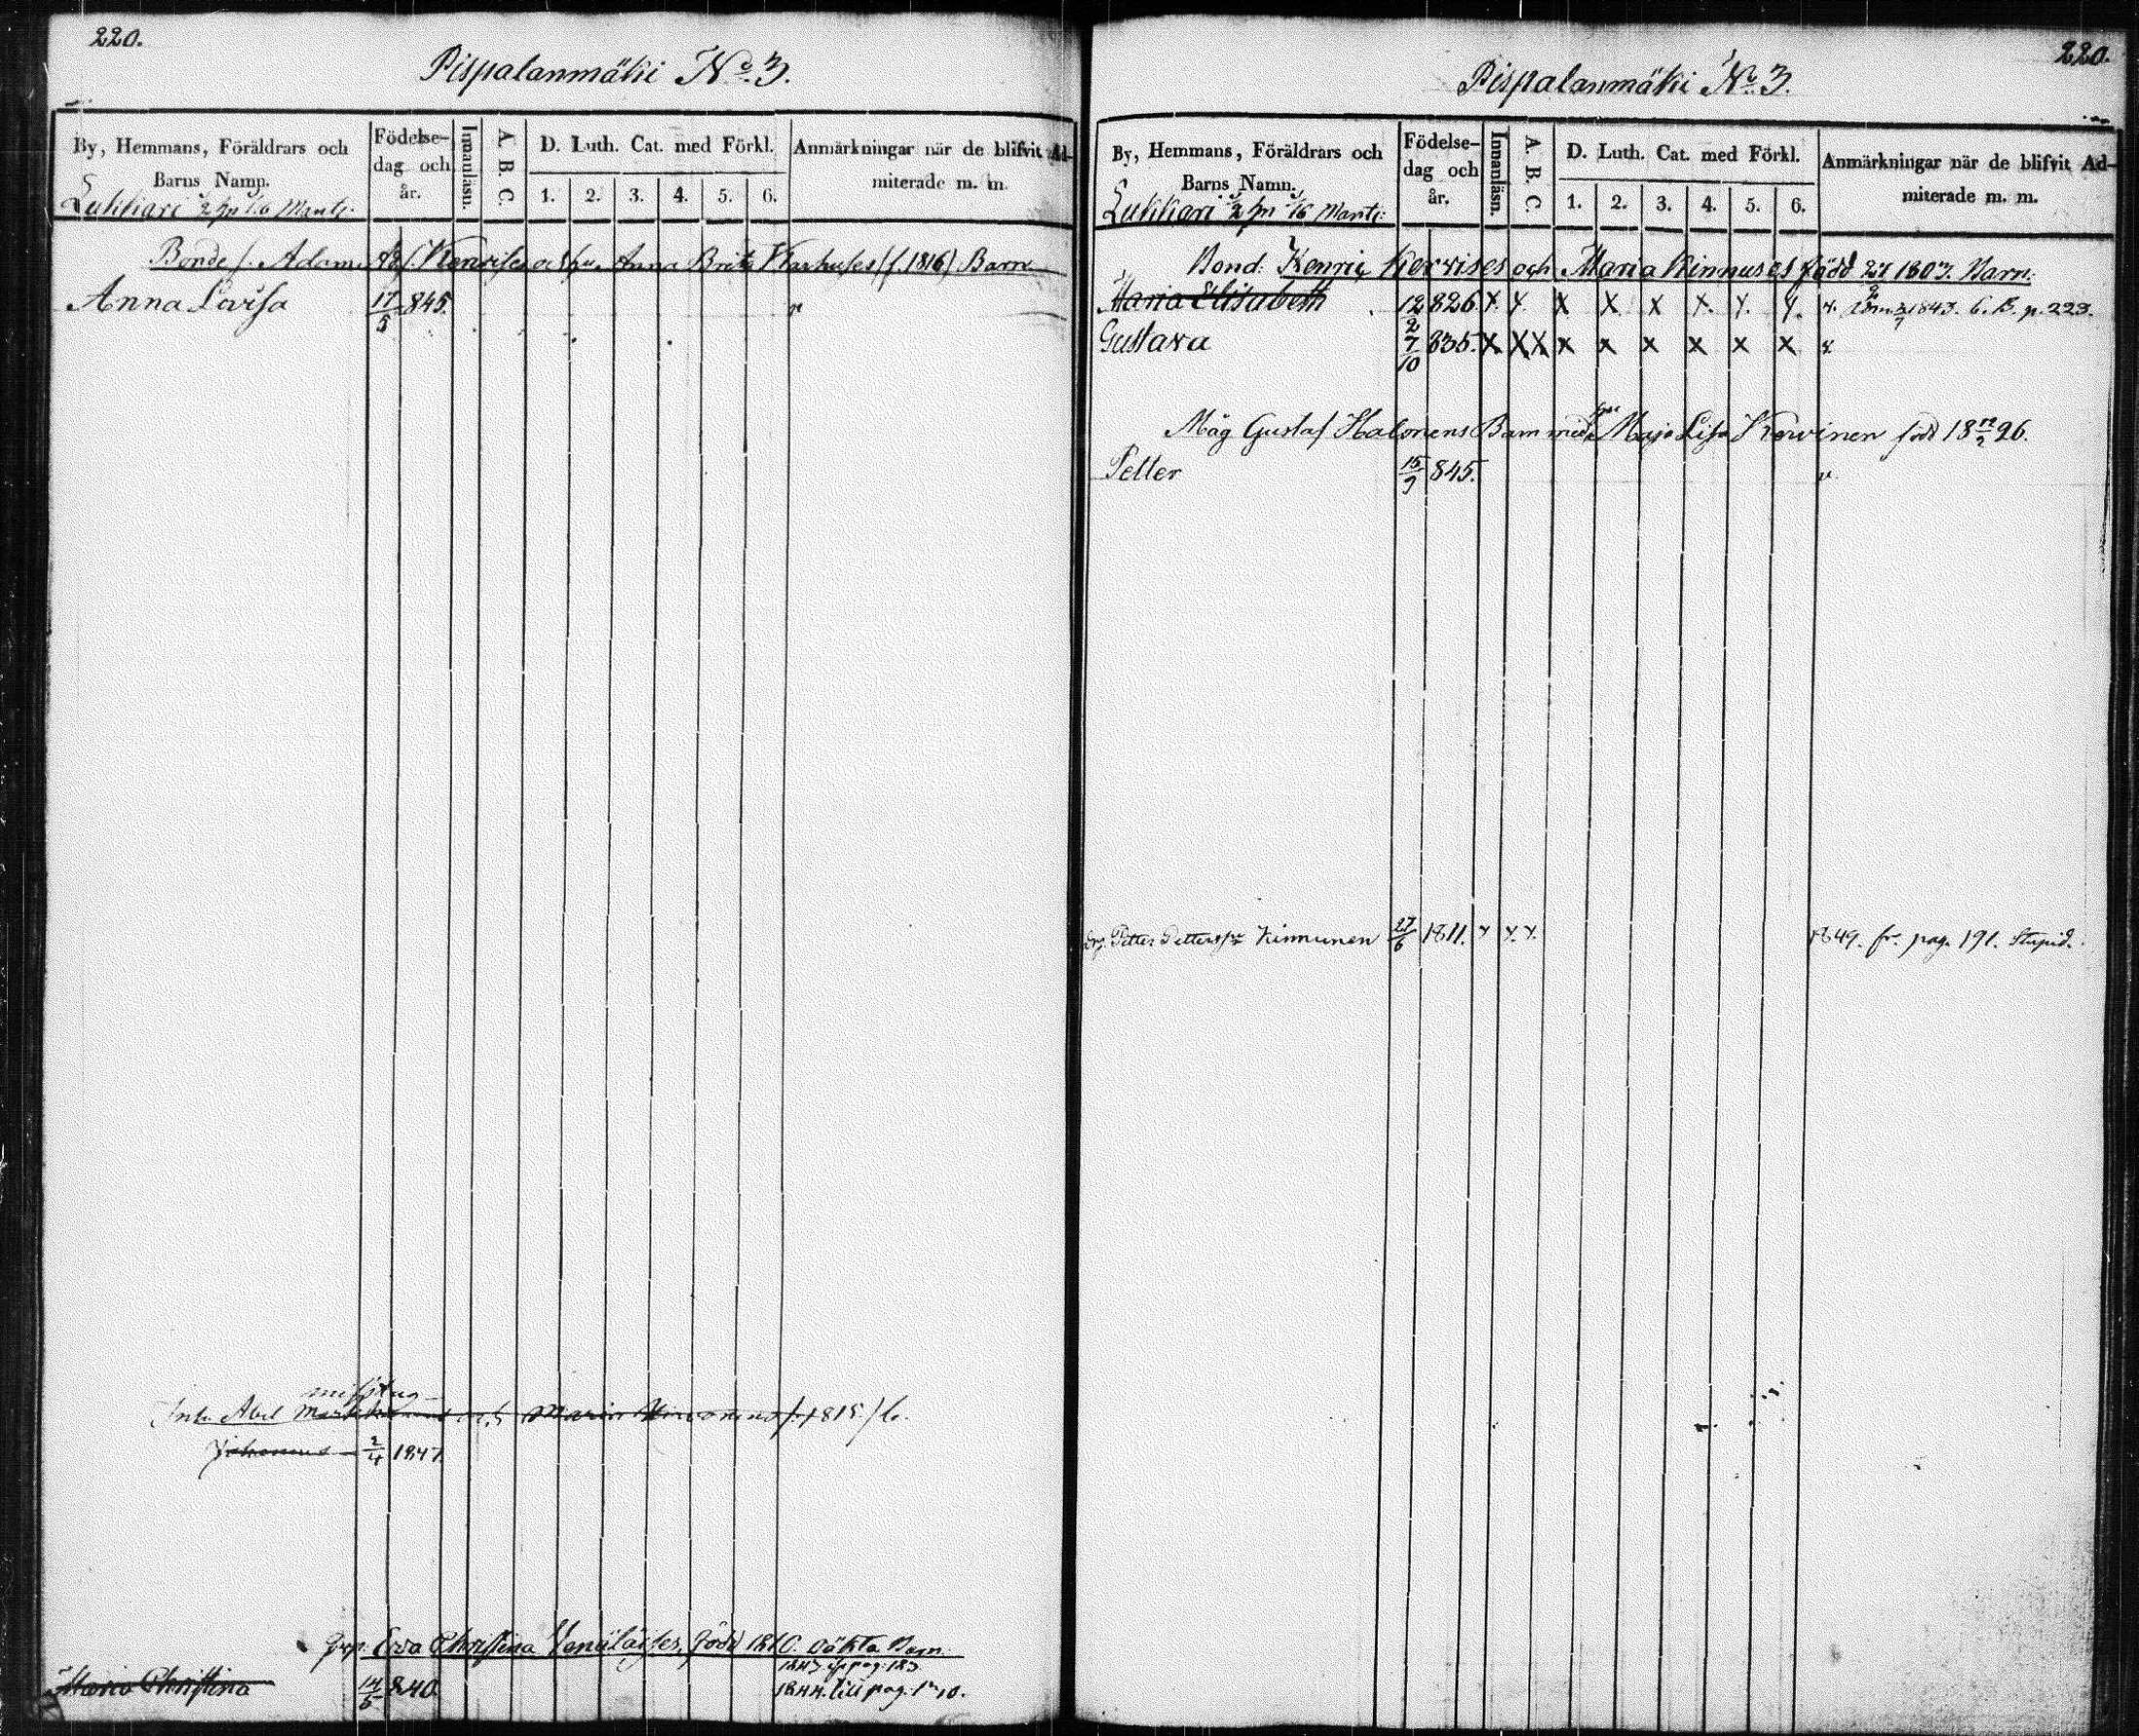 220.
Pispalanmäki No. 3.
By, Hemmans, Föräldrars och Barns Namn.
Födelse-dag och år.
Innanläsn.
A. B. C.
D. Luth. Cat. med Förkl.
1. 2. 3. 4. 5. 6.
Anmärkningar när de blifvit Ad-miterade m. m.
Lukkari 1/2 1/6 Mant:
Bonde s. Adam Ad/ Kervises och hu. Anna Brita Karhuses (f. 1816) Barn
Anna Lovisa 17/5 845. v
Inh. Abel
Maria f. 1815) b.
Johannes 2/4 1847.
Eva Christina Venäläises, född 1810. oäkta Barn.
1843 pag. 183
Maria Christina 14/5 840 1844. till pag.
220.
Pispalanmäki No. 3.
By, Hemmans, Föräldrars och Barns Namn.
Födelse-dag och år.
Innanläsn.
A. B. C.
D. Luth. Cat. med Förkl.
1. 2. 3. 4. 5. 6.
Anmärkningar när de blifvit Ad-miterade m. m.
Lukkari 1/2 1/6 Mant:
Bond: Henric Kervises och Maria Kinnuses född 1803. Barn:
Maria Elisabeth 12/2 826. x x x x x x x x v. 1843. C. B. p. 223.
Gustava 7/10 835. x x x x x x x x x v
Måg Gustaf Halonens Barn med hu Maja Lisa Kervinen född 18 12/2 26.
Petter 15/9 845. v.
Petter Petterss. Kinnunen 27/6 1811. x x. x. 1849. fr. pag. 191. Stupid.